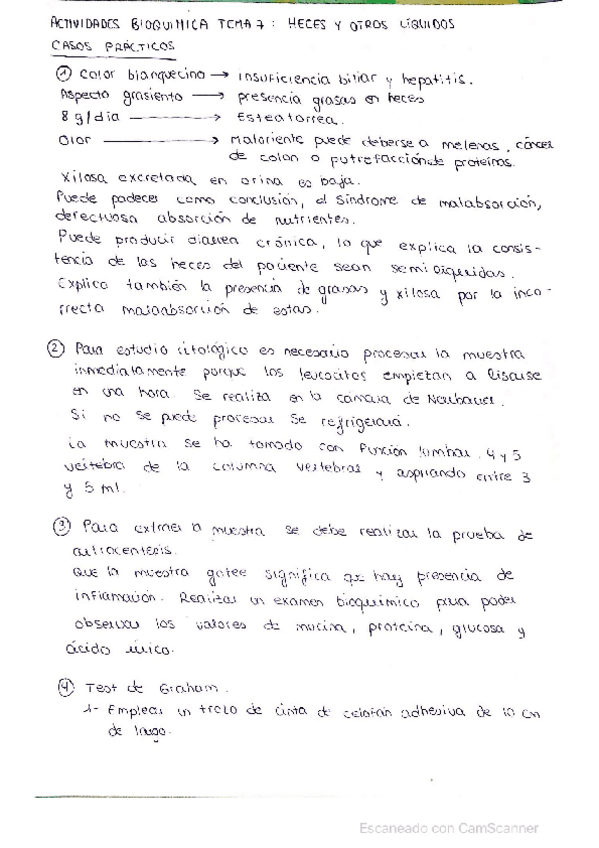 ACTIVIDADES BIOQUIMICA TEMA 7: HECES Y OTROS LÍQUIDOS
CASOS PRÁCTICOS
① Color blanquecino → insuficiencia biliar y hepatitis.
Aspecto grasiento → presencia grasas en heces
8 g/dia → Esteatorrea.
Olor → Maloriente puede deberse a melenas, cáncer
de colon o putrefacción de proteínas.
Xilosa excretada en orina es baja.
Puede padecer como conclusión, el síndrome de malabsorción,
defectuosa absorción de nutrientes.
Puede producir diarrea crónica, lo que explica la consis-
tencia de las heces del paciente sean semiliquidas.
Explica también la presencia de grasas y xilosa por la inco-
rrecta malabsorción de estas.
② Para estudio citológico es necesario procesar la muestra
inmediatamente porque los leucocitos empiezan a lisarse
en una hora. Se realiza en la cámara de Neubauer.
Si no se puede procesar se refrigerará.
La muestra se ha tomado con Punción lumbar. 4 y 5
vértebra de la columna vertebral y aspirando entre 3
y 5 ml.
③ Para extraer la muestra se debe realizar la prueba de
artrocentesis.
Que la muestra gotee significa que hay presencia de
inflamación. Realizar un examen bioquímico para poder
observar los valores de mucina, proteína, glucosa y
ácido úrico.
④ Test de Graham.
1- Emplear un trozo de cinta de celofán adhesiva de 10 cm
de largo.
Escaneado con CamScanner